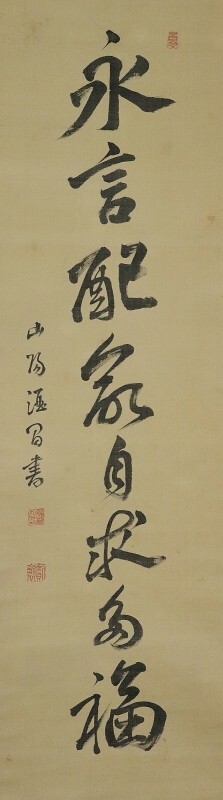 永言配命自求多福
山陽書